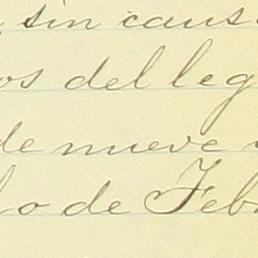 sin caus
os del leg
de nueve
o de Feb